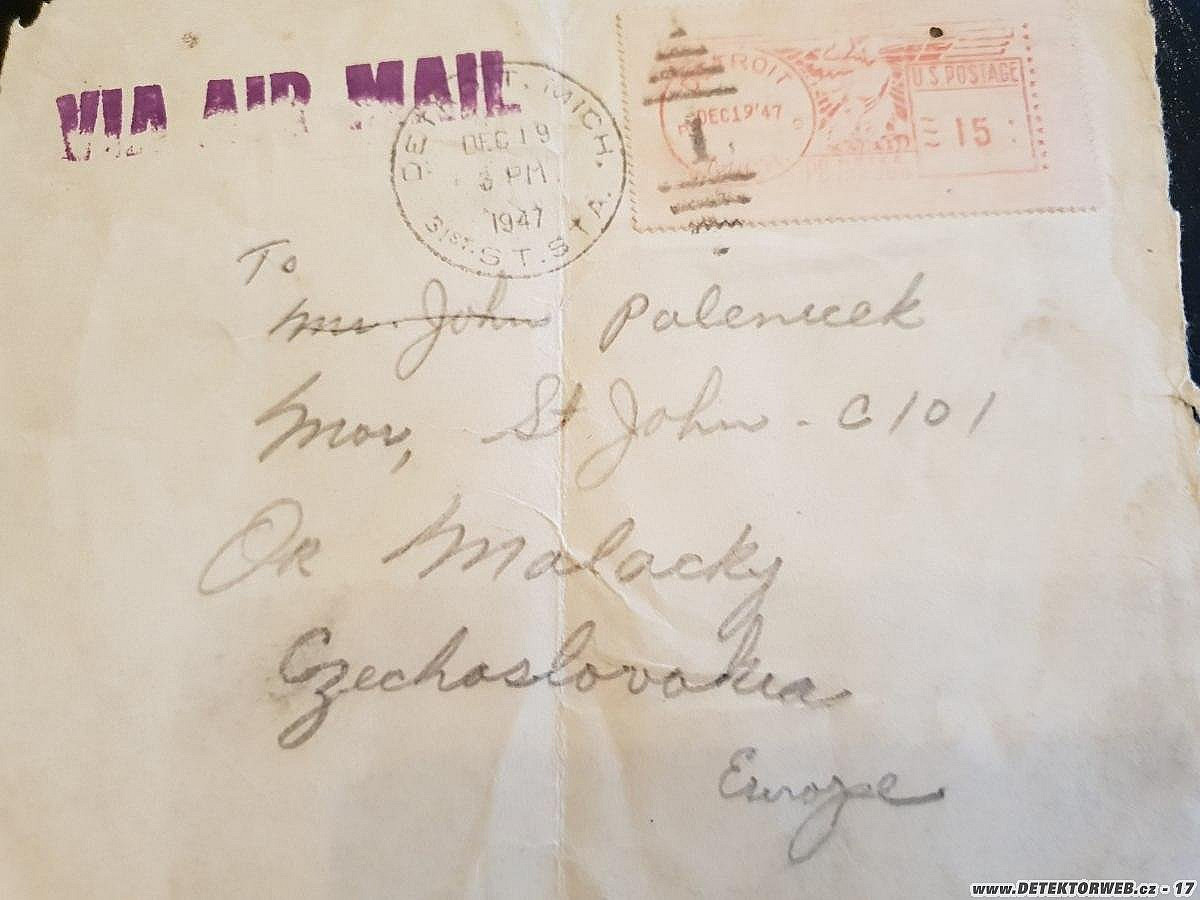 VIA AIR MAIL
DET. MICH.
DEC 19
3 PM
1947
31ST. ST. STA.
DETROIT
DEC 19 '47
1
U.S. POSTAGE
15
To
Mr. John Palenicek
Mor, St John - C 101
Ok Malacky
Czechoslovakia
Europe
www.DETEKTORWEB.cz - 17